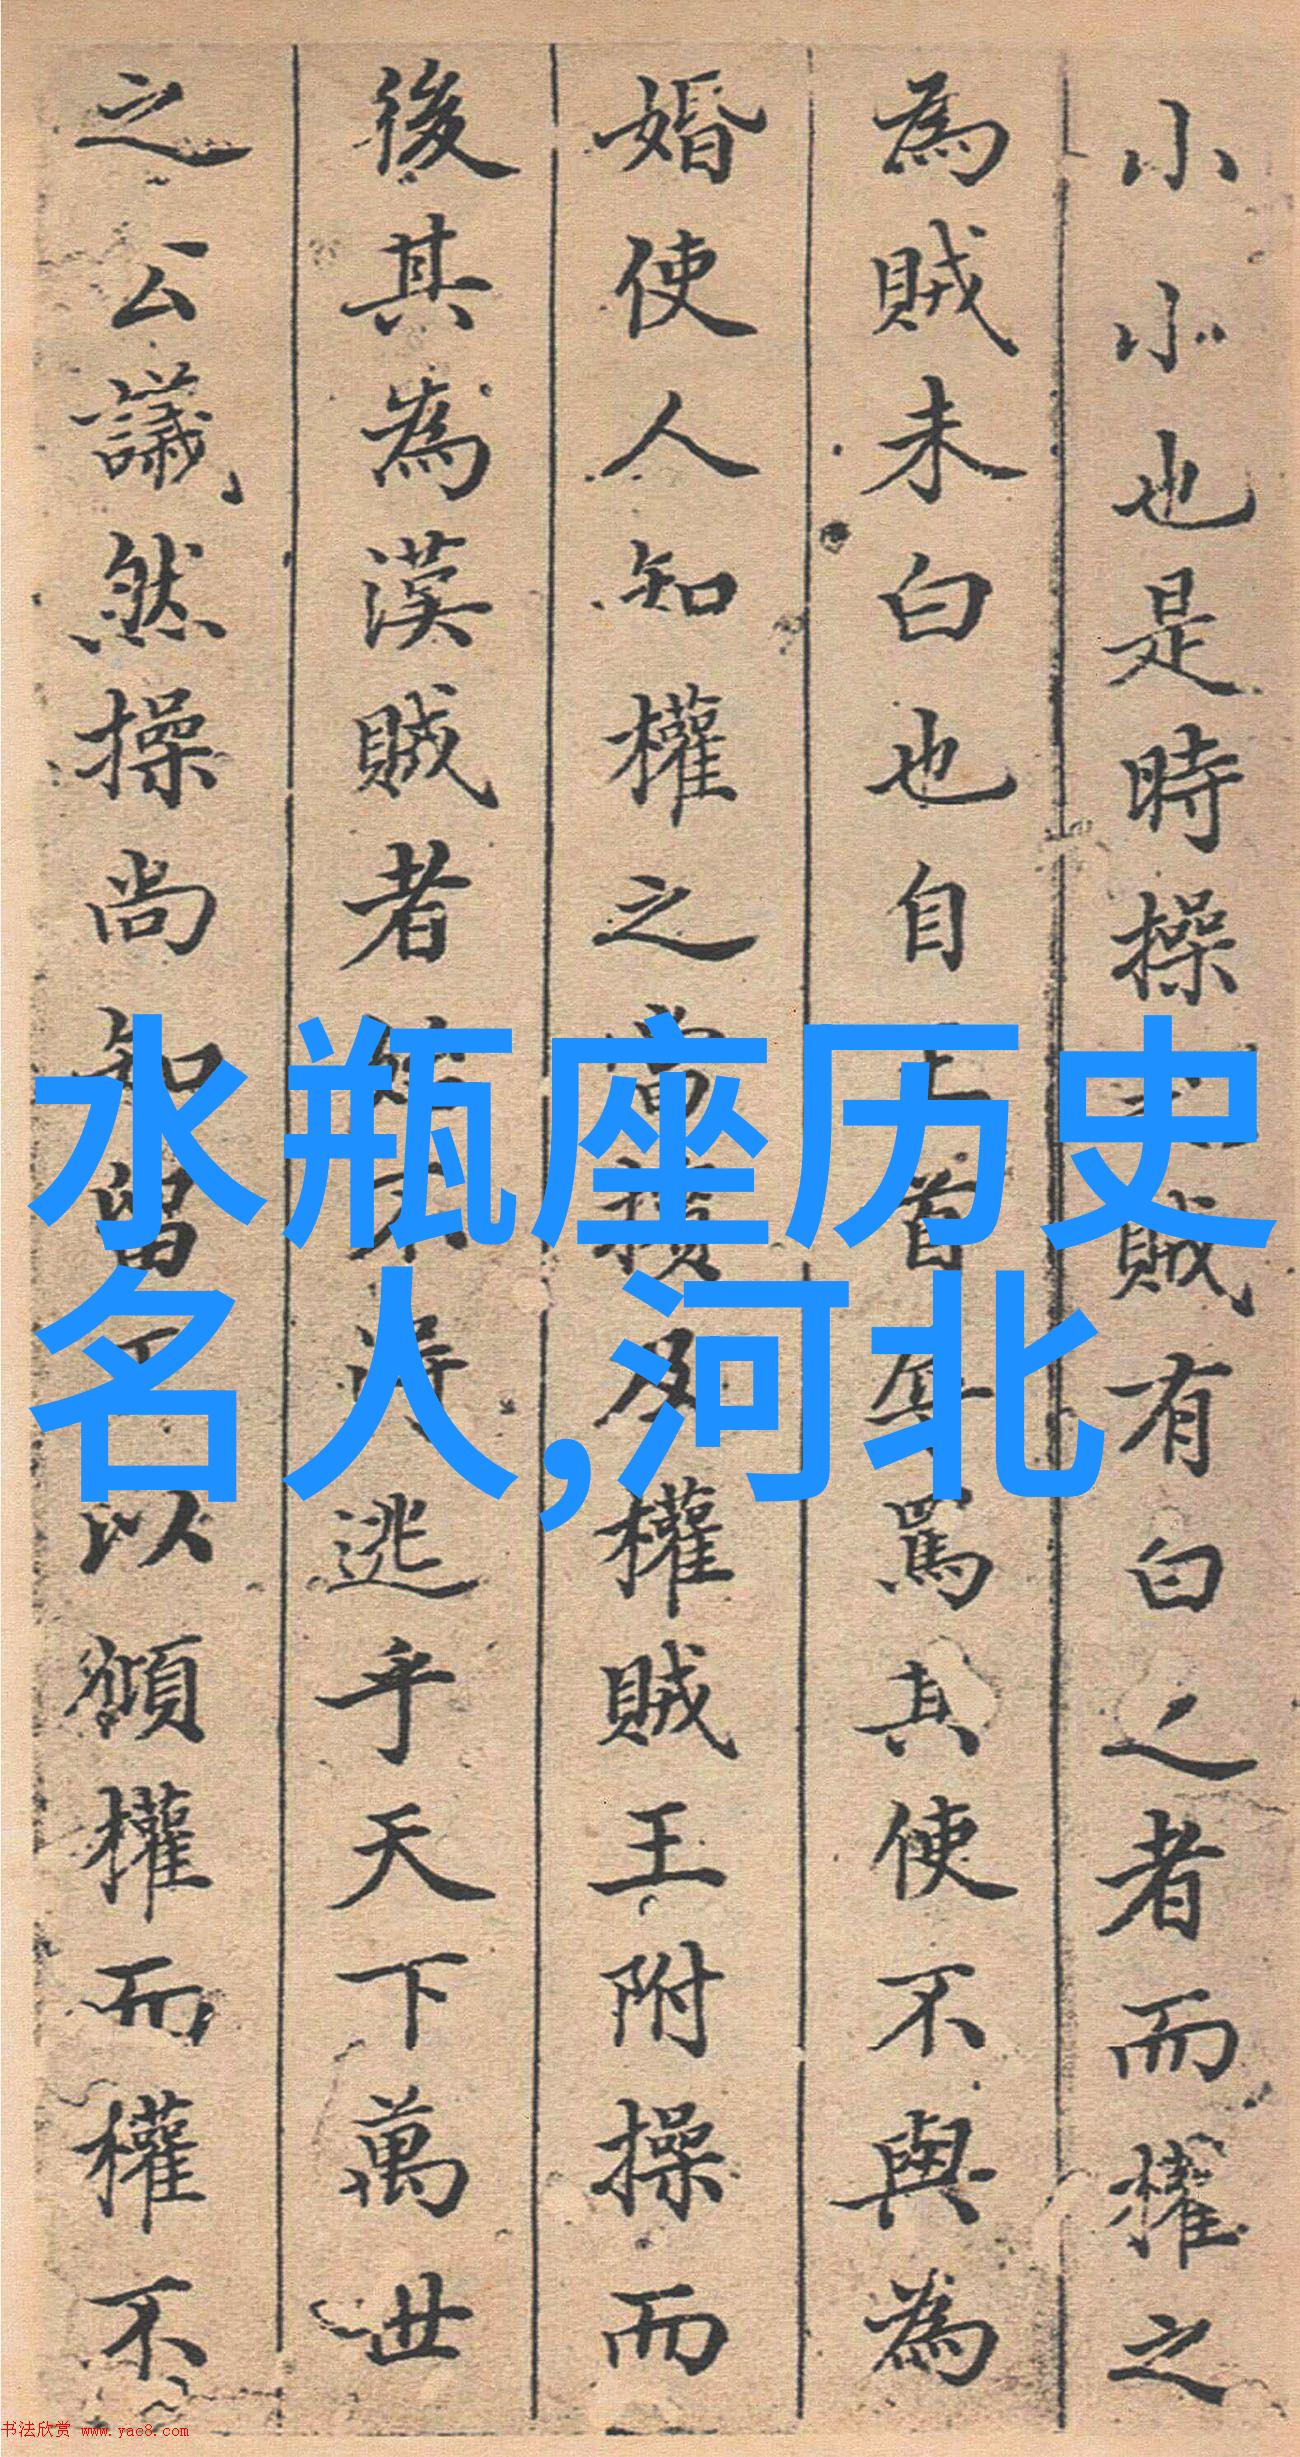 小小也是時操賊有白之者而權之
為賊未白也自首罵其使不與為
婚使人知權之當及權賊王附操而
後其為漢賊者不逃乎天下萬世
之公議然操尚知留以頒權而權不
水瓶座历史
名人,河北
书法欣赏 www.yac8.com